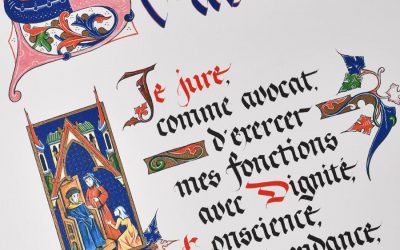 Je jure,
comme avocat,
d'exercer
mes fonctions
avec Dignité,
Conscience,